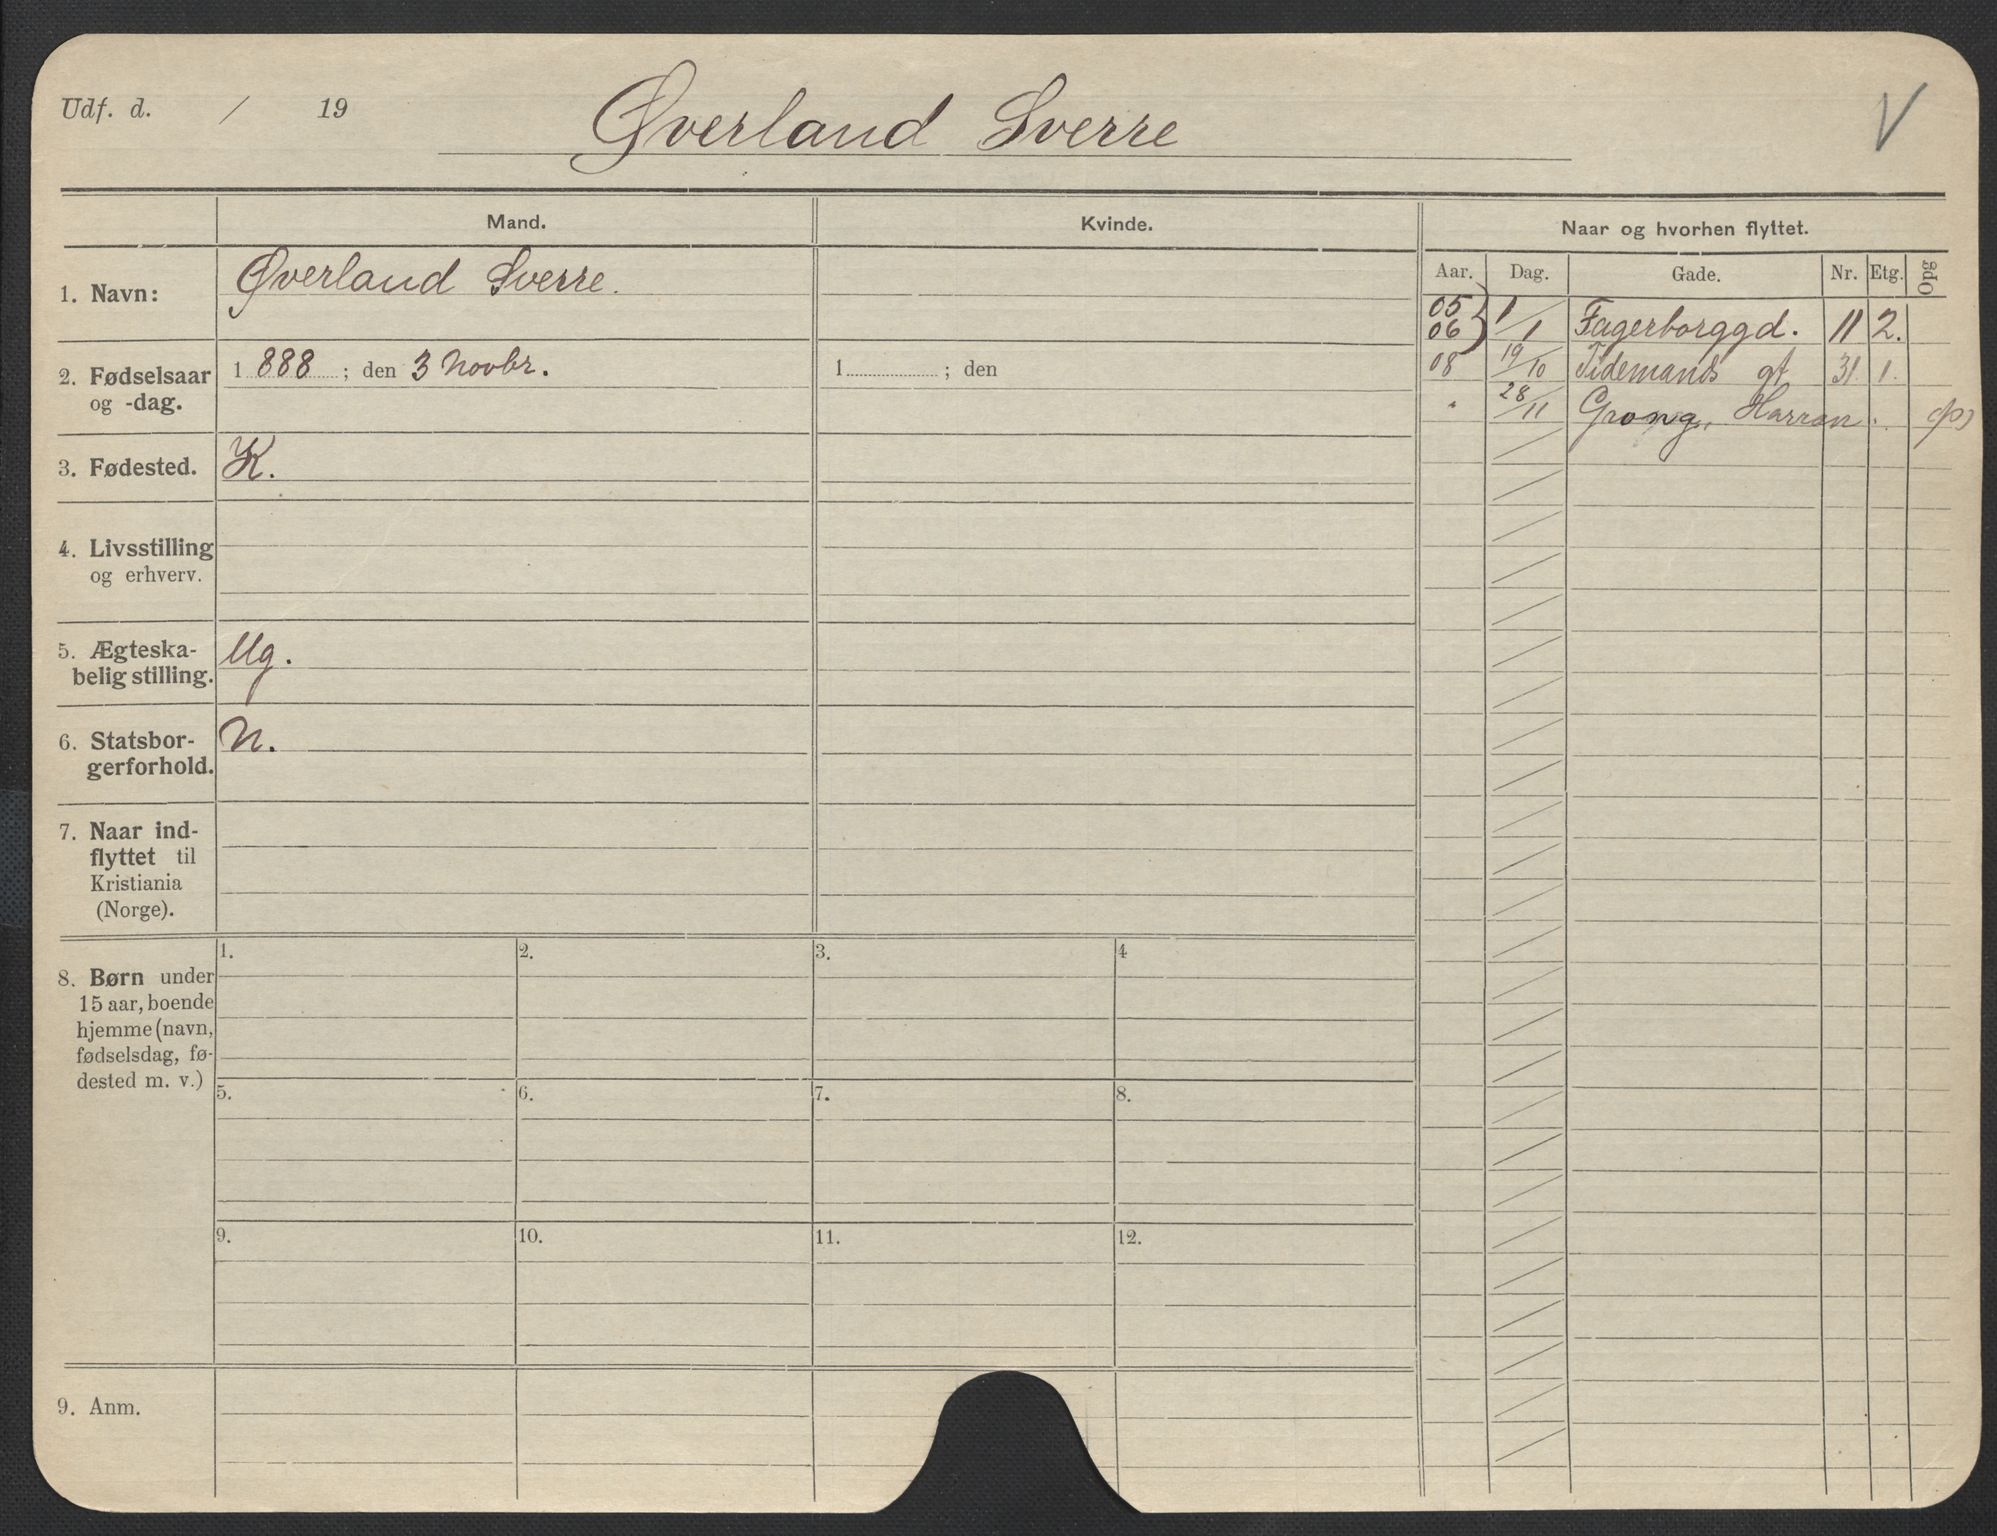 Udf. d. / 19
Øverland Sverre
V
Mand.
Kvinde.
Naar og hvorhen flyttet.
Aar. Dag. Gade. Nr. Etg. Opg
1. Navn: Øverland Sverre.
05 06 } 1/1 Fagerborggd. 11 2.
2. Fødselsaar
og -dag.
1 888 ; den 3 Novbr.
1 ; den
08 19/10 Tidemands gt 31. 1.
" 28/11 Grong, Harran.
3. Fødested. K.
4. Livsstilling
og erhverv.
5. Ægteska-
belig stilling. Ug.
6. Statsbor-
gerforhold. N.
7. Naar ind-
flyttet til
Kristiania
(Norge).
8. Børn under
15 aar, boende
hjemme (navn,
fødselsdag, fø-
dested m. v.)
1. 2. 3. 4
5. 6. 7. 8.
9. 10. 11. 12.
9. Anm.